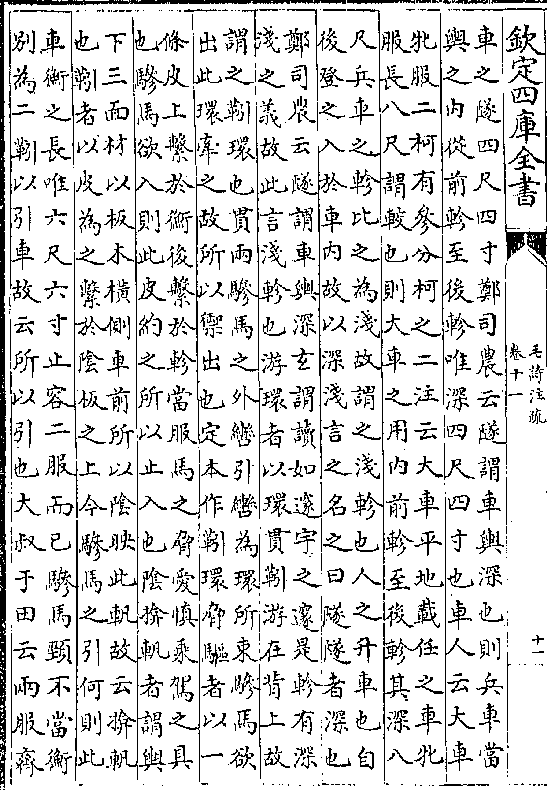 欽定四庫全書
毛詩注疏
卷十一
十一
車之隧四尺四寸鄭司農云隧謂車輿深也則兵車當
輿之内從前軫至後軫唯深四尺四寸也車人云大車
牝服二柯有參分柯之二注云大車平地載任之車牝
服長八尺謂較也則大車之用内前軫至後軫其深八
尺兵車之軫比之為淺故謂之淺軫也人之升車也自
後登之入於車内故以深淺言之名之曰隧隧者深也
鄭司農云隧謂車輿深玄謂讀如邃宇之邃是軫有深
淺之義故此言淺軫也游環者以環貫靷游在背上故
謂之靷環也貫兩驂馬之外轡引轡為環所束驂馬欲
出此環牽之故所以禦出也定本作靷環脅驅者以一
條皮上繫於衡後繫於軫當服馬之脅愛慎乘駕之具
也驂馬欲入則此皮約之所以止入也陰揜軓者謂輿
下三面材以板木横側車前所以陰映此軓故云揜軓
也靷者以皮為之繫於陰板之上令驂馬之引何則此
車衡之長唯六尺六寸止容二服而已驂馬頸不當衡
别為二靷以引車故云所以引也大叔于田云兩服齊